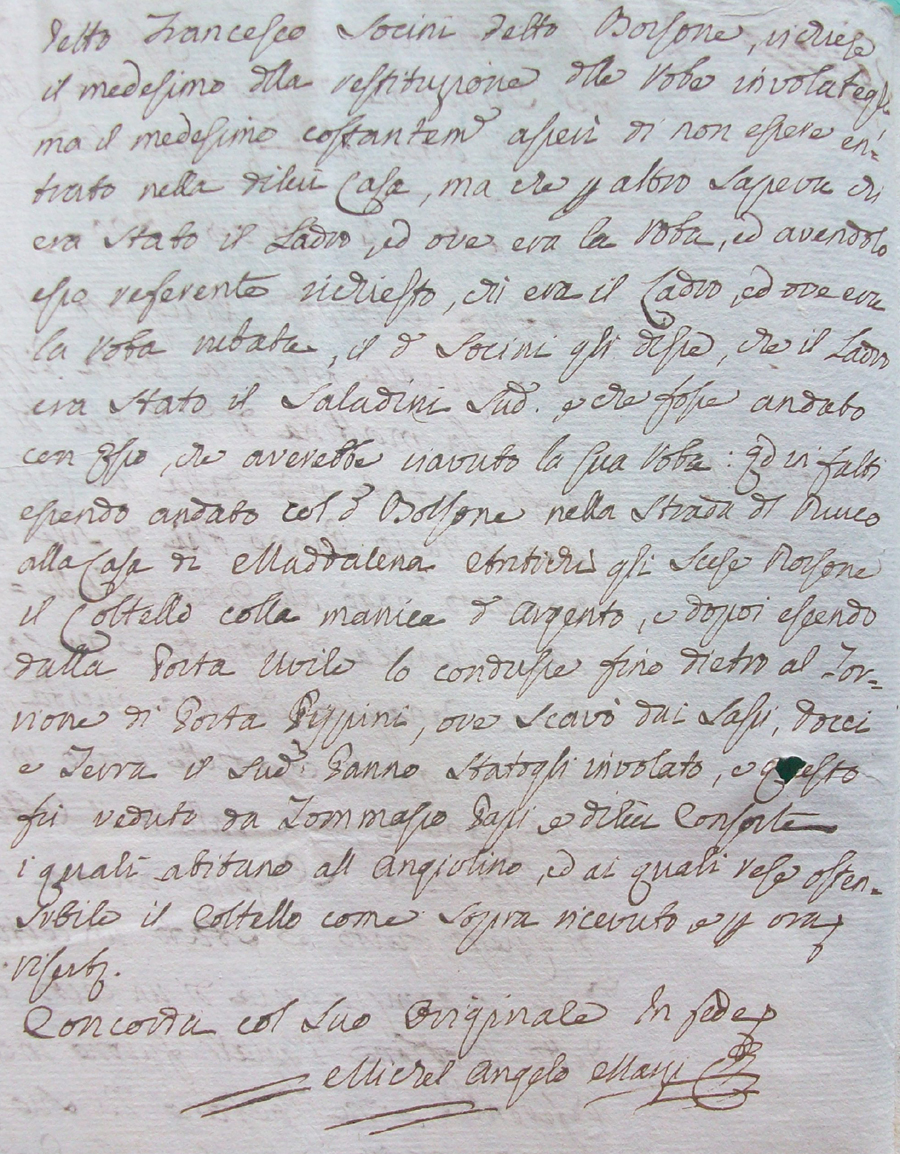 detto Francesco Socini detto Borsone, richiese
il medesimo dlla restituzione dlle robe involategli
ma il medesimo costantem.e asserì di non essere en-
trato nella dilui Casa, ma che p altro sapeva chi
era stato il Ladro, ed ove era la roba, ed avendolo
esso referente richiesto, chi era il Ladro, ed ove era
la roba rubata, il d.o Socini gli disse, che il Ladro
era stato il Saladini Sud.o e che fosse andato
con Esso, che averebbe riavuto la sua roba: Ed in fatti
essendo andato col d.o Borsone nella Strada di
alla Casa di Maddalena gli Scese Borsone
il Coltello colla manica d'argento, e dopoi escendo
dalla Porta Uvile lo condusse fino dietro al Tor-
rione di Porta Pispini, ove scavò dai Sassi, docci
e Terra il Sud.o Panno statogli involato, e questo
fù veduto da Tommaso Papi e dilui Consorte
i quali abitano all Angiolino, ed ai quali rese osten-
sibile il Coltello come sopra ricevuto e p ora

Concorda col suo Originale In fede
Michel Angelo